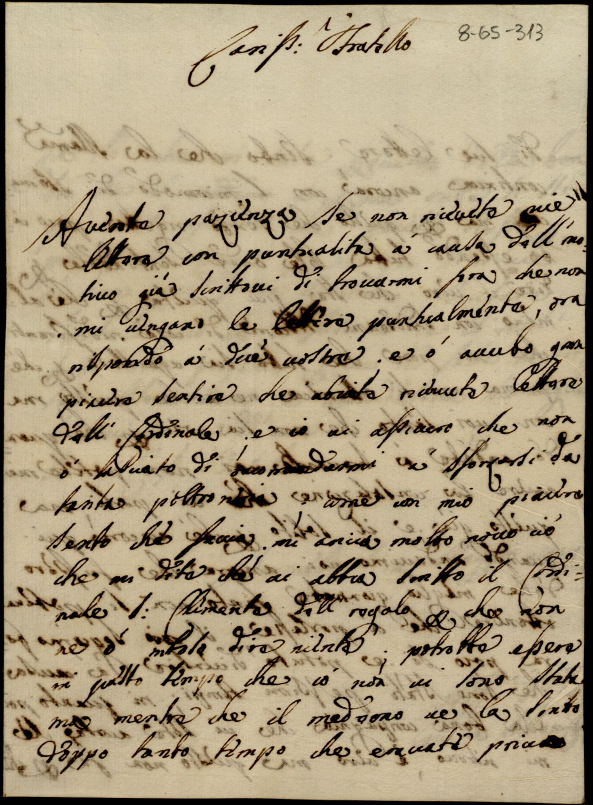 8-65-313
Cariss:mo Fratello
Averete pazienza se non ricevete mie
lettere con puntualità à causa dell'mo-
tivo già scrittovi di trovarmi fora che non
mi vengano le lettere puntualmente, ora
rispondo à due vostre e ò auuto gran
piacere sentire che abiate riceute lettere
dall' Cardinale e io vi assicuro che non
ò lasciato di à sforzarsi da
tanta poltroneria come con mio piacere
sento che facia. mi ariva molto novo ciò
che mi dite che vi abbia scritto il Cardi-
nale S: Clemente dell regalo che non
ne ò inteso dire niente. potrette essere
in questo tempo che io non vi sono stata
ma mentre che il medemo ve la scritto
doppo tanto tempo che eravate privo